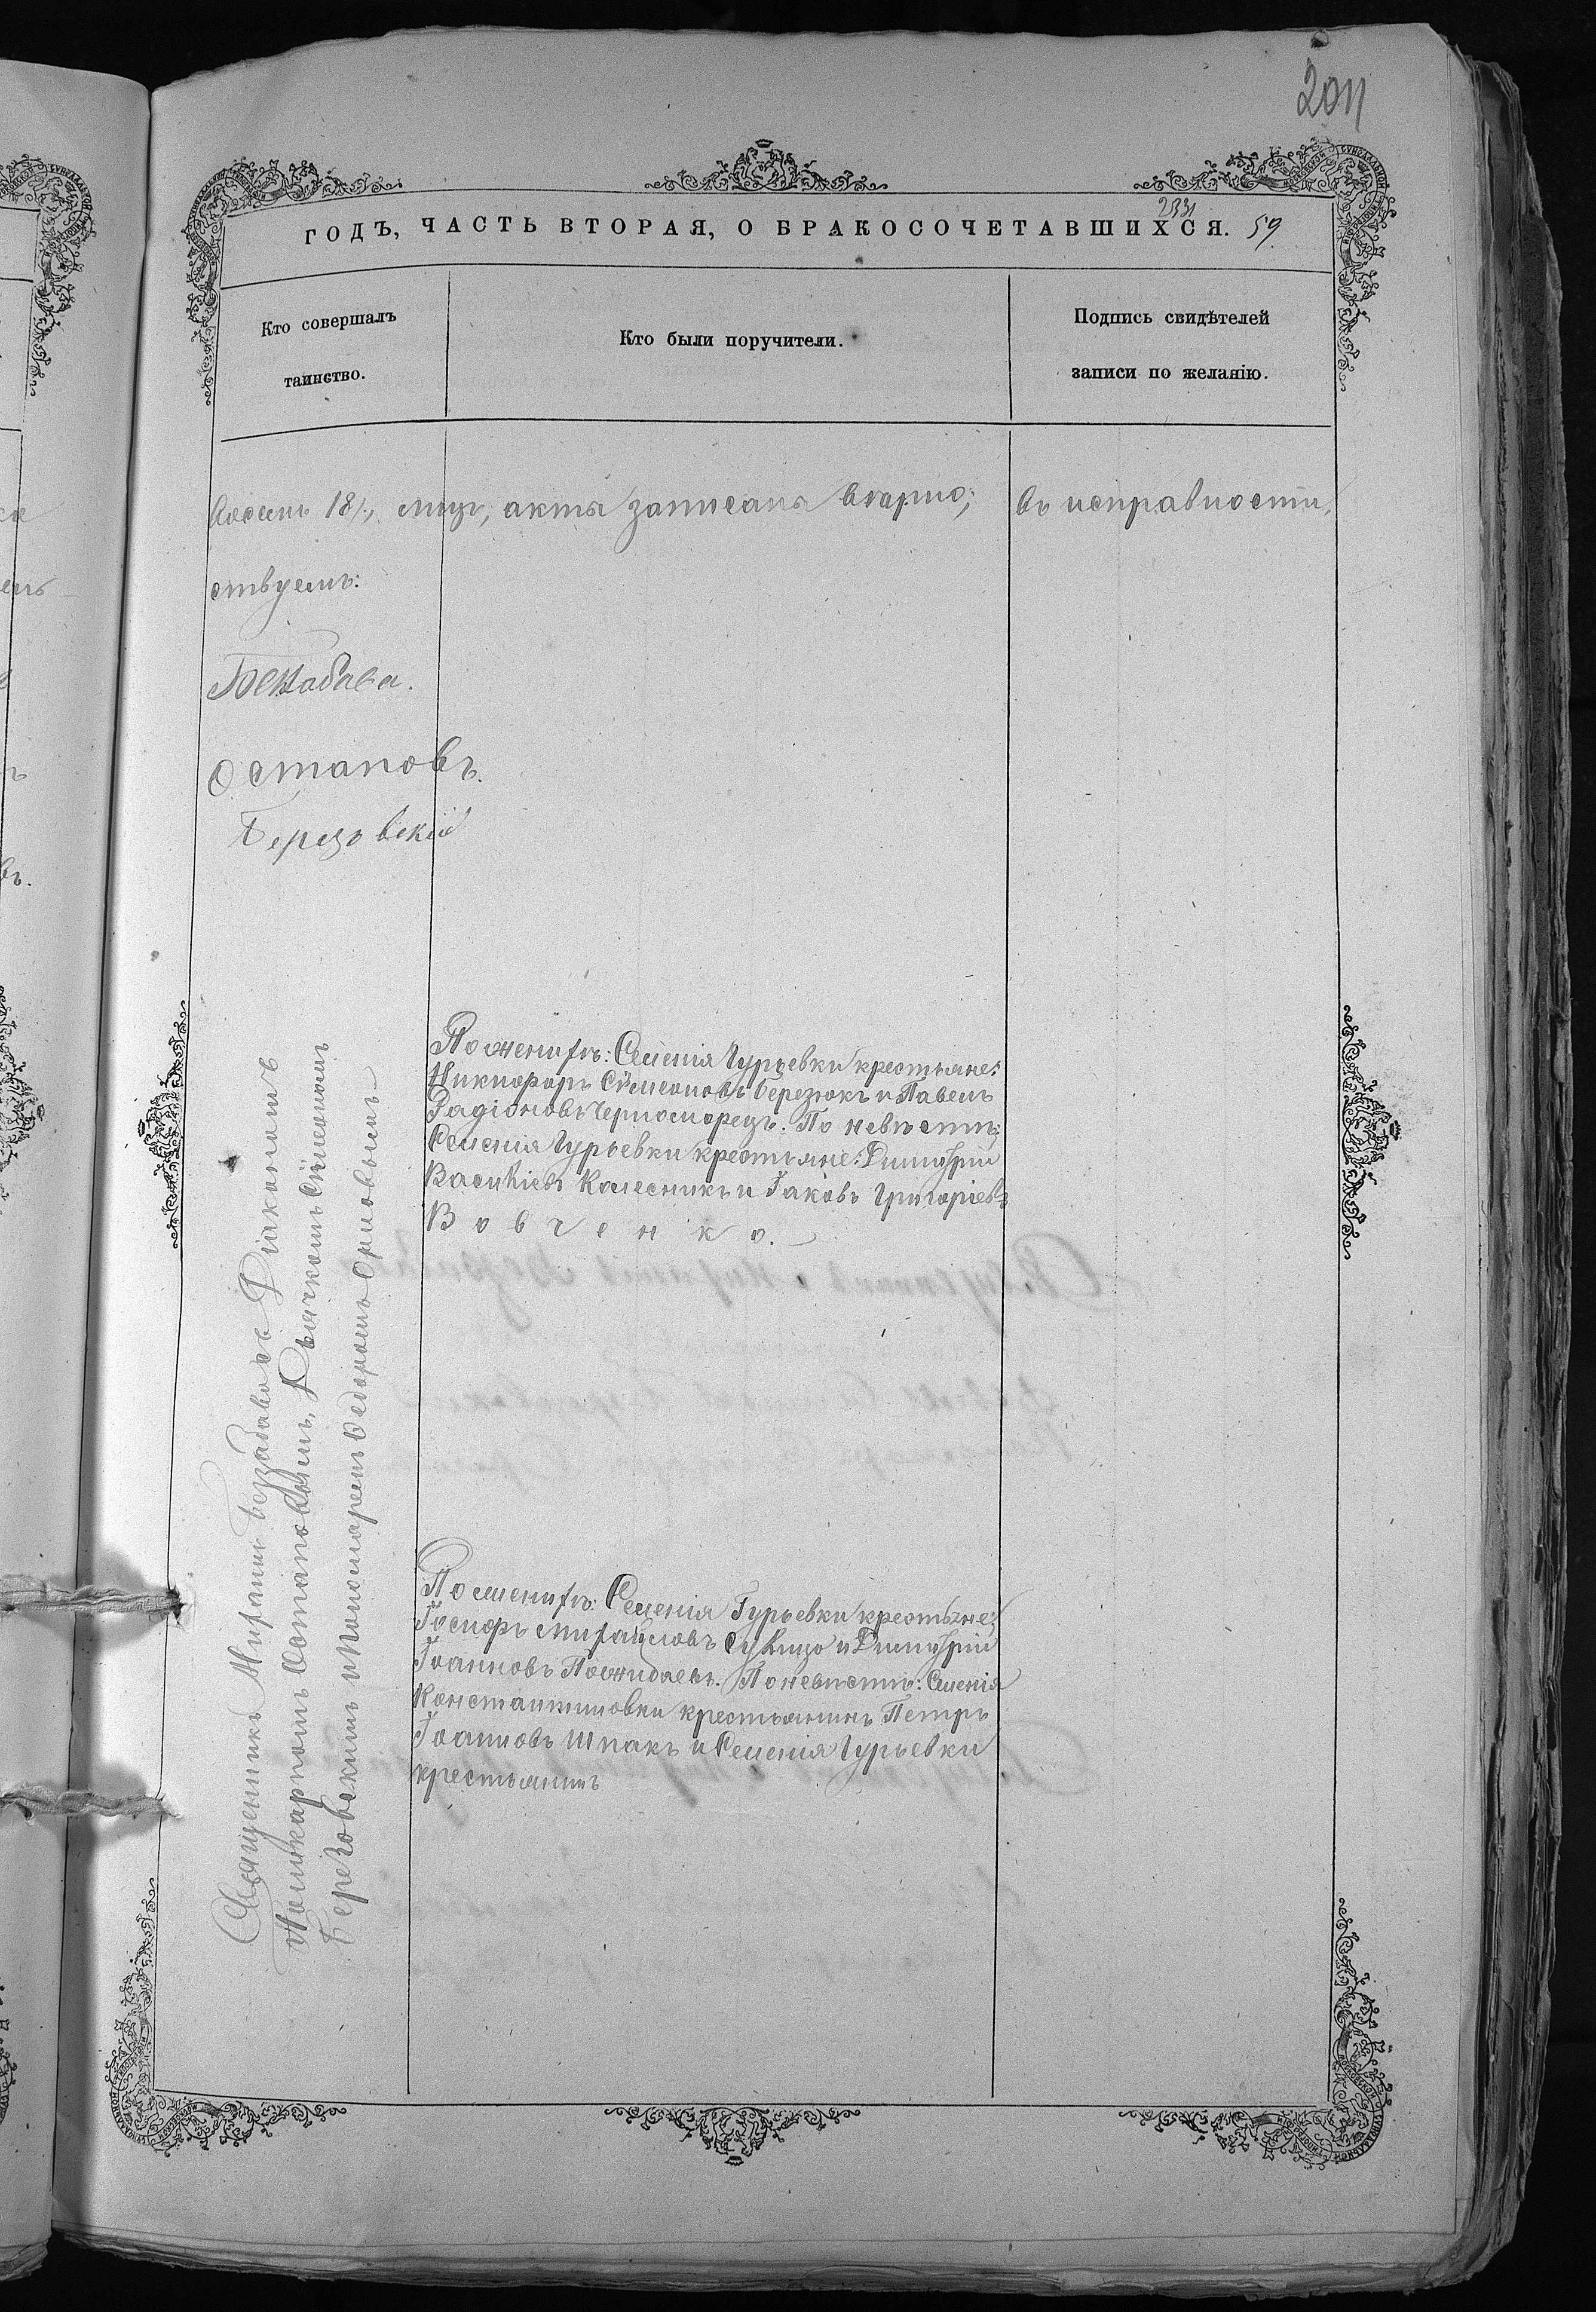 2011
2331
ГОДЪ, ЧАСТЬ ВТОРАЯ, О БРАКОСОЧЕТАВШИХСЯ. 59
Кто совершалъ
таинство.
Кто были поручители.
Подпись свидѣтелей
записи по желанію.
восемь 18 акта записана вѣрно; въ исправности,
ствуемъ:
Остаповъ.
Березовскій
Священникъ Михаилъ Беззабава съ Діакономъ
Поликарпомъ Остаповымъ, Дьячкомъ Симеономъ
Березовскимъ и Пономаремъ Ѳедоромъ Орловымъ
По женихѣ: Селенія Гурьевки крестьяне:
Никифоръ Симеоновъ Березюкъ и Павелъ
Радіоновъ Черноморецъ. По невѣстѣ;
Селенія Гурьевки крестьяне: Димитрій
Василіевъ Колесникъ и Іаковъ Григоріевъ
Вовченко.
По женихѣ: Селенія Гурьевки крестьяне;
Іосифъ Михайловъ и Димитрій
Іоанновъ Пожидаевъ. По невѣстѣ: Селенія
Константиновки крестьянинъ Петръ
Іоанновъ Шпакъ и Селенія Гурьевки
крестьянинъ